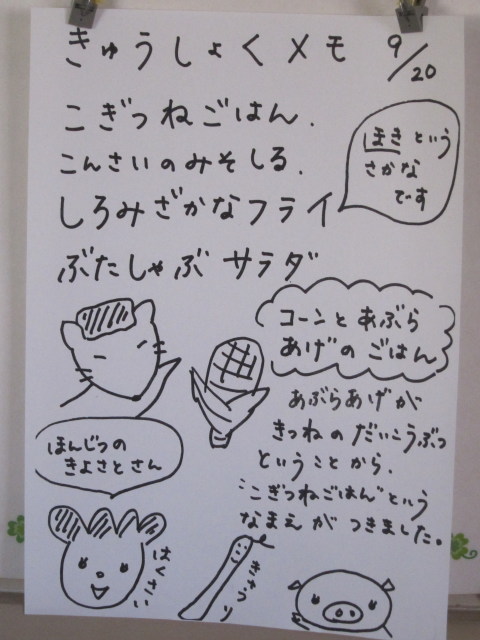 きゅうしょくメモ 9/20
こぎつねごはん.
こんさいのみそしる.
しろみざかなフライ
ほきという
さかな
です
ぶたしゃぶサラダ
コーンとあぶら
あげのごはん
あぶらあげが
きつねのだいこうぶつ
ということから.
"こぎつねごはん"という
なまえがつきました。
ほんじつの
きよさとさん
はくさい
きゅうり